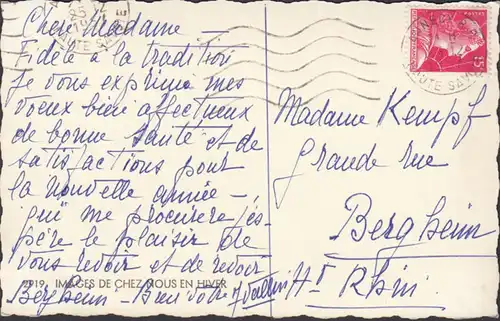 Chère Madame
Fidèle à la tradition
je vous exprime mes
voeux bien affectueux
de bonne santé et de
satisfactions pour
la nouvelle année -
qui me procurera j'es-
père le plaisir de
vous revoir et de revoir
Bergheim - Bien vôtre
2919. IMAGES DE CHEZ NOUS EN HIVER
Madame Kempf
Grande rue
Bergheim
Ht Rhin
15
HAUTE SAVOIE